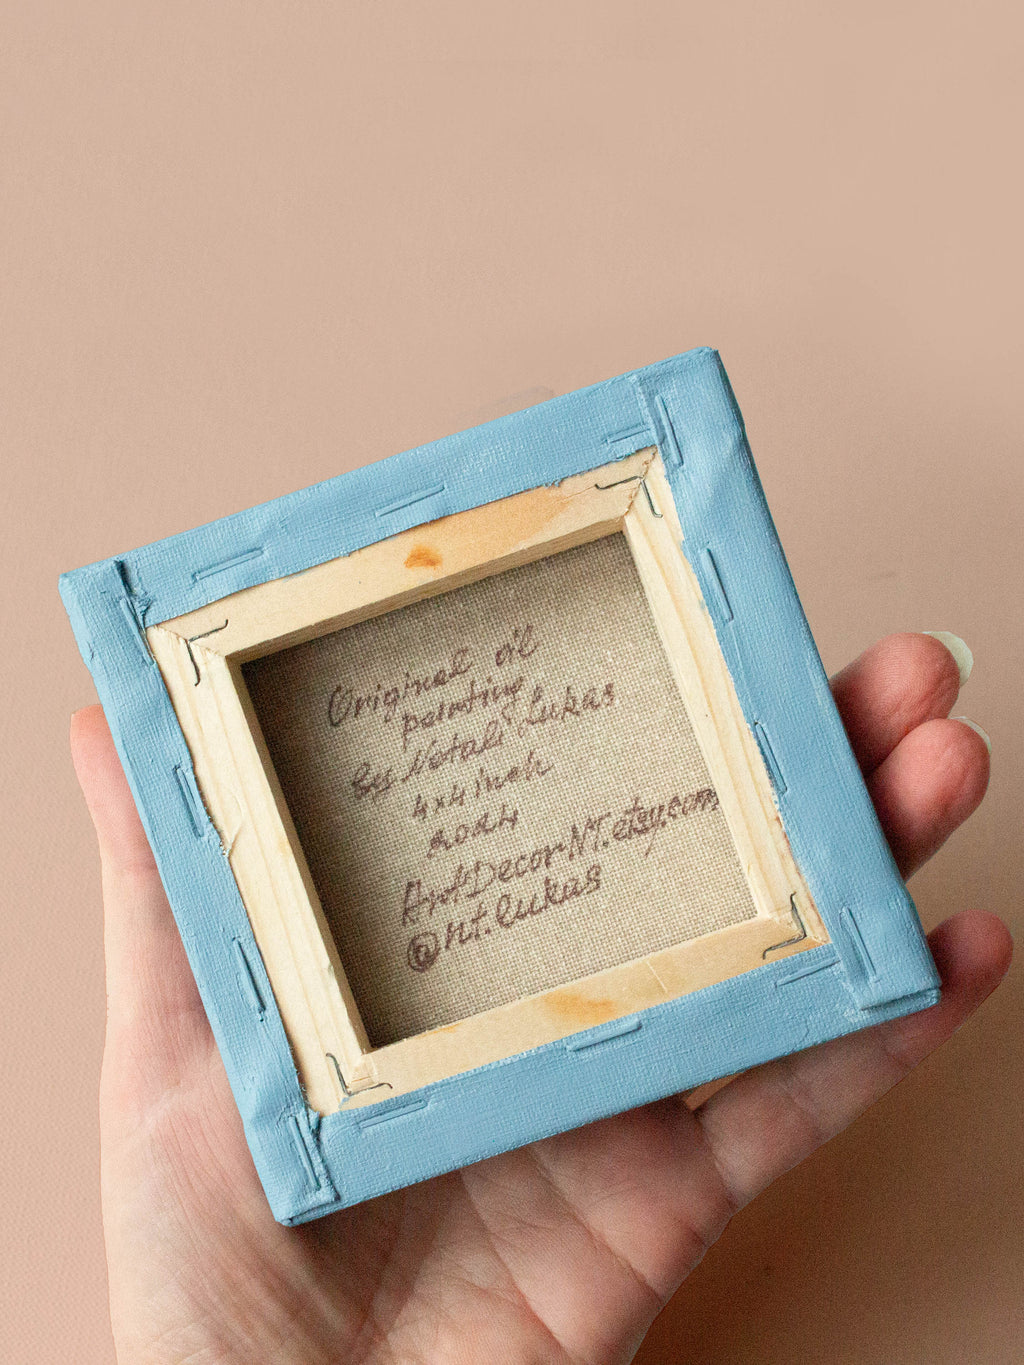 Original oil
painting
by Natali Lukas
4x4 inch
2024
ArtDecorNT.etsy.com
@nt.lukas